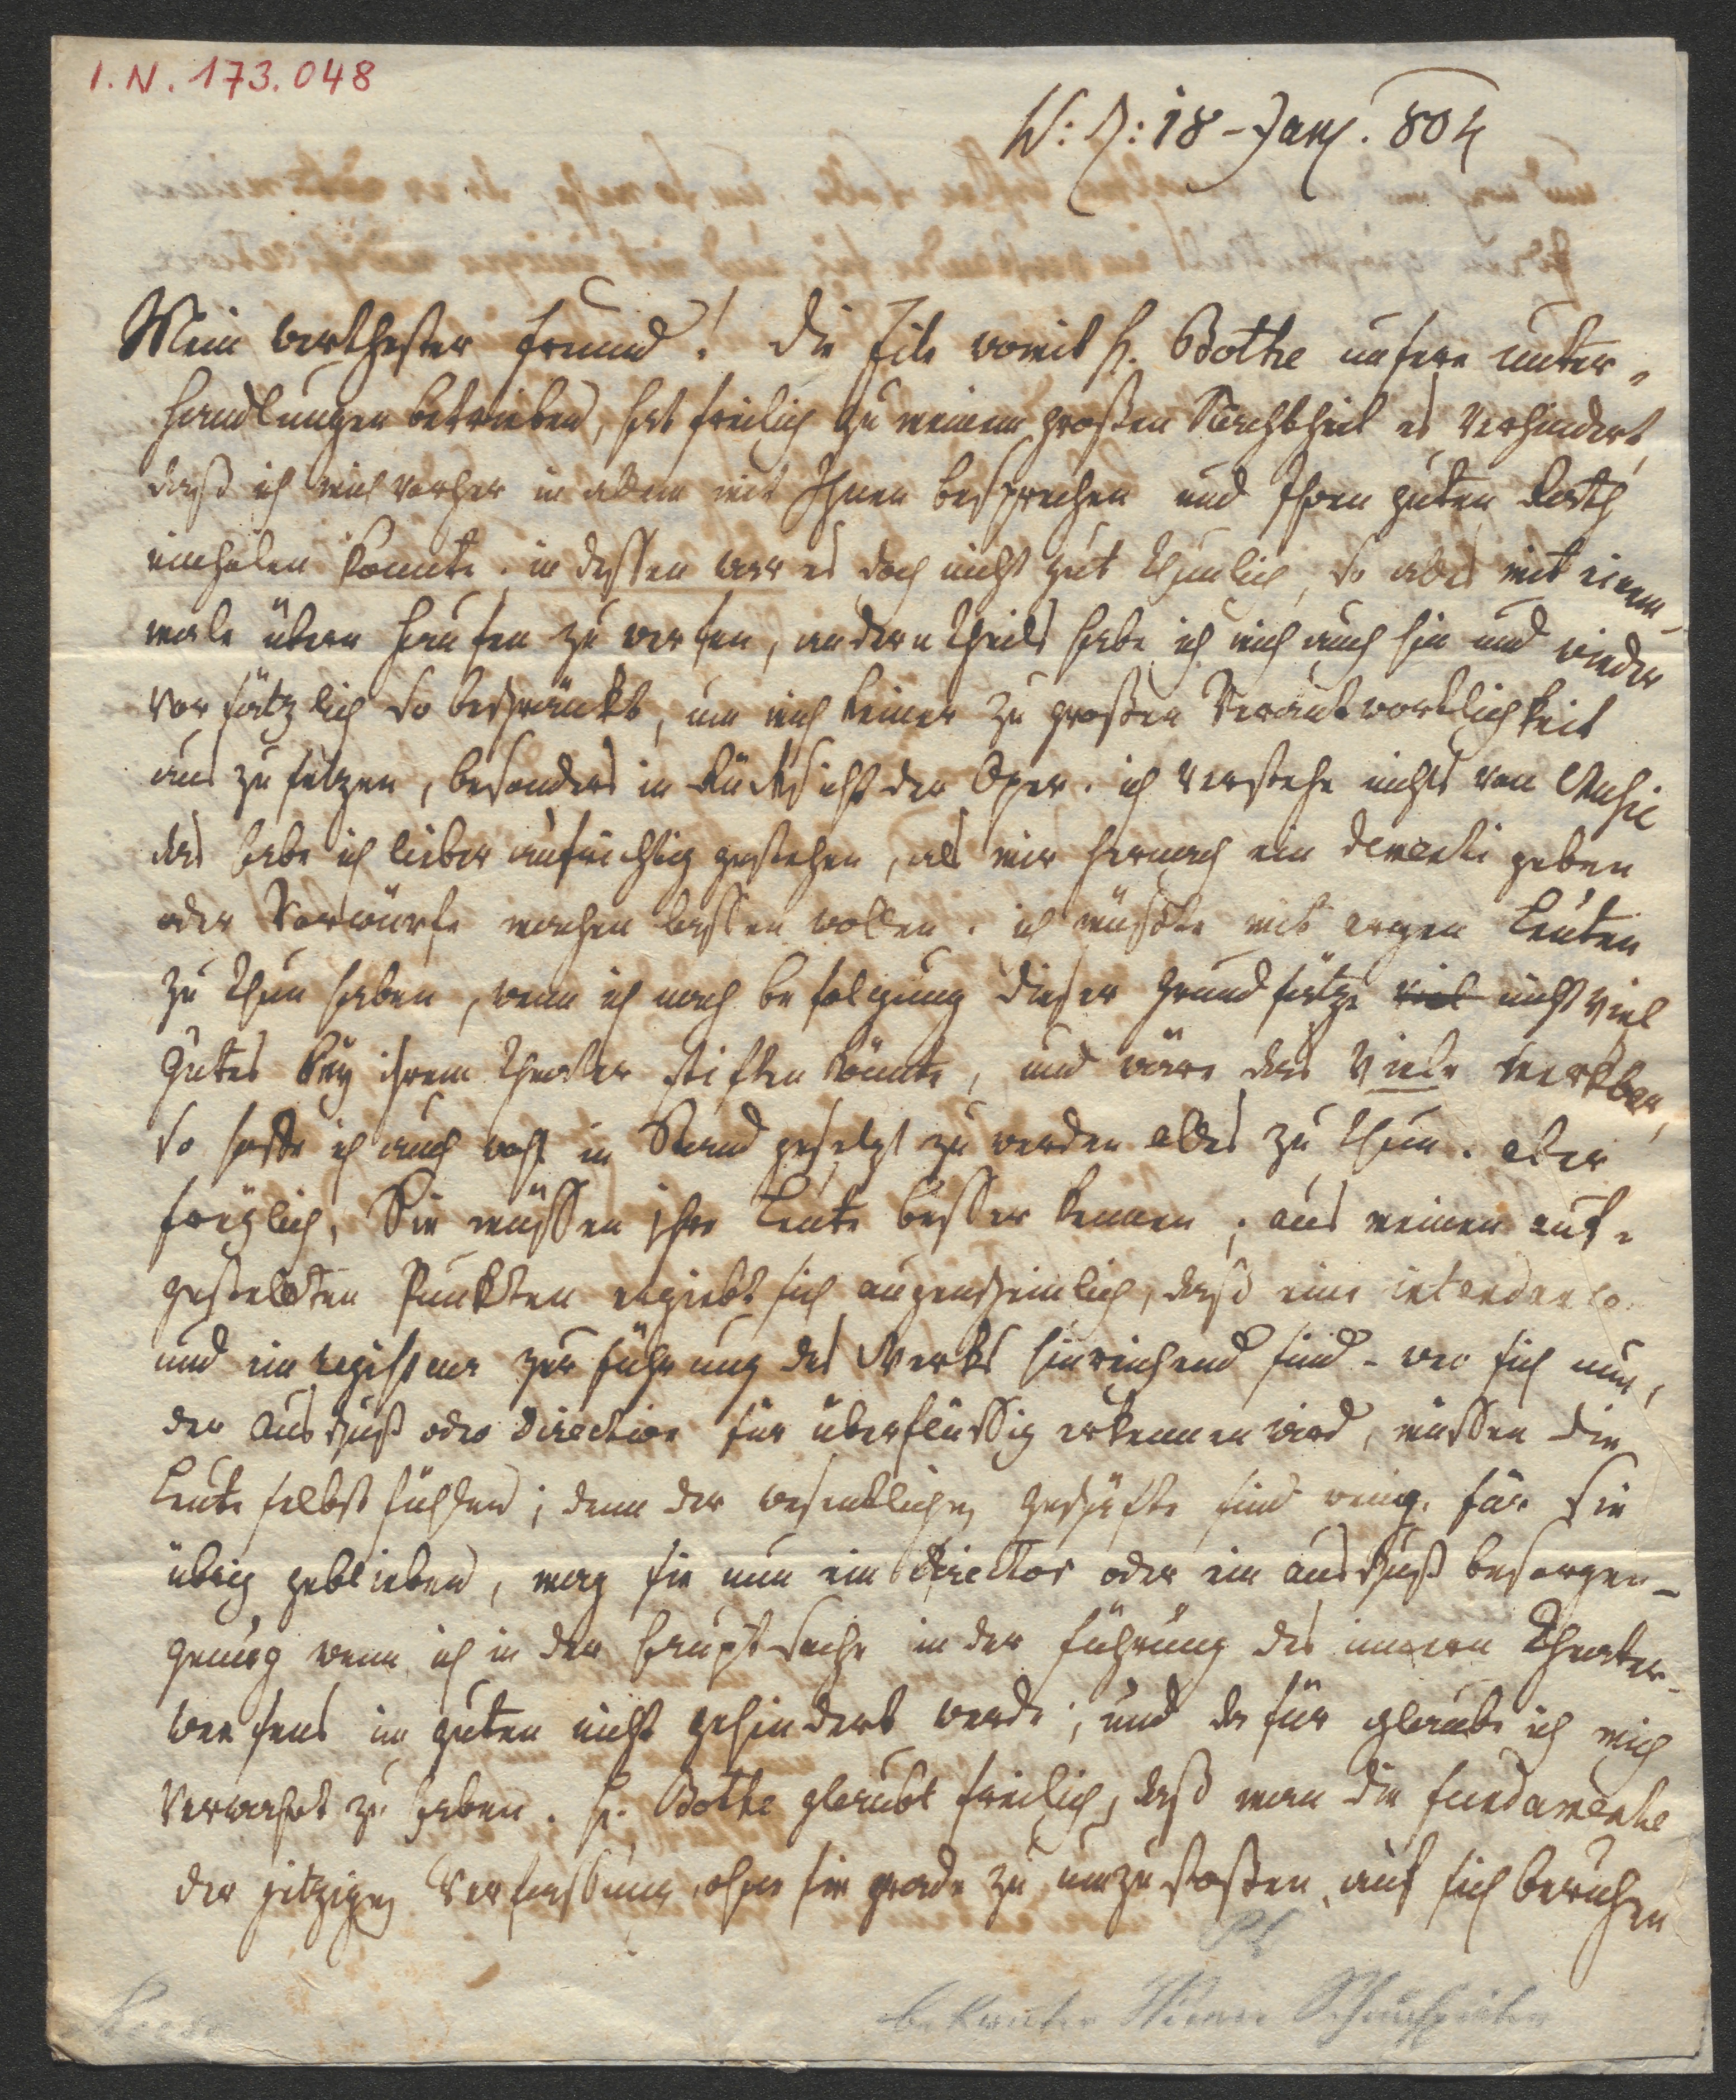 I.N. 173.048
W: d: 18 - Jan. 804
Mein werthester Freund! die Eile womit H. Bothe unsere unter-
handlungen betrieben, hat freilich zu meinem großen Nachtheil es verhindert,
daß ich mich vorher in allem mit Ihnen besprechen und Ihren guten Rath
einholen konnte. indessen war es doch nicht gut thunlich, so alles mit einem-
male übern Haufen zu werfen, andern theils habe ich mich auch hin und wieder
vorsätzlich so beschränkt, um mich keiner zu großen Verantwortlichkeit
aus zu setzen, besonders in Rücksicht der Oper. ich verstehe nichts von Musik
das habe ich lieber aufrichtig gestehen, als mir hernach ein dementi geben
oder Vorwürfe machen lassen wollen. ich müßte mit argen Leuten
zu thun haben, wenn ich nach befolgung dieser Grundsätze viel nicht viel
Gutes bey ihrem Theater stiften könnte, und wäre das Viele merkbar,
so hoffe ich auch wohl in Stand gesetzt zu werden alles zu thun. aber
freylich, Sie müssen ihre Leute besser kennen; aus meinen auf-
gestellten Punkten ergiebt sich augenscheinlich, daß eine intendance
und ein regisseur zur führung des Werks hinreichend sind - wer sich nun,
der Ausschuß oder Direction für überflüssig erkennen wird, müssen die
Leute selbst fühlen; denn der wesentlichen geschäfte sind wenig für sie
übrig geblieben, mag sie nun ein Director oder ein ausschuß besorgen -
genug wenn ich in der Hauptsache in der führung des innern Theater-
wesens im guten nicht gehindert werde; und dafür glaube ich mich
verwahrt zu haben. H. Bothe glaubt freilich, daß man die fundamente
der jetzigen Verfassung, ohne sie grade zu umzustoßen, auf sich beruhen
bekannter Wiener Schauspieler